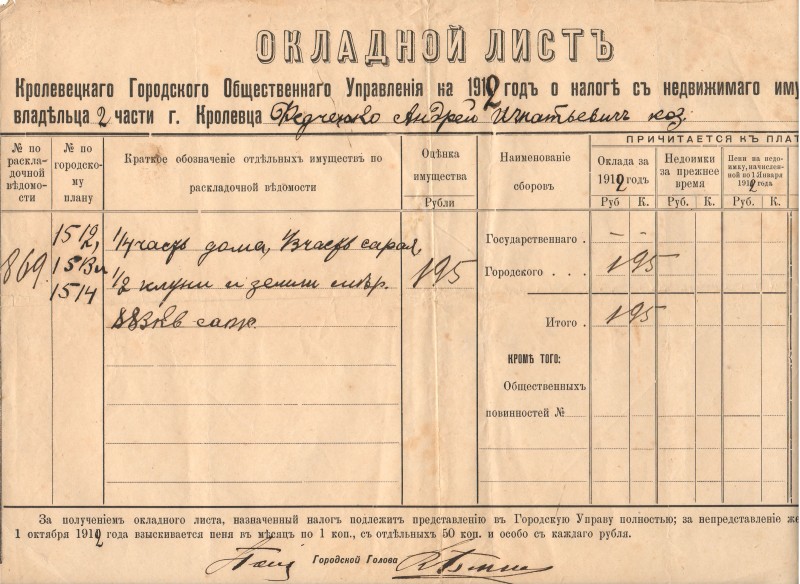 ОКЛАДНОЙ ЛИСТЪ
Кролевецкаго Городского Общественнаго Управленія на 1912 годъ о налогѣ съ недвижимаго иму
владѣльца 2 части г. Кролевца Федченко Андрей Игнатьевич коз.
ПРИЧИТАЕТСЯ КЪ ПЛАТ
№ по раскладочной вѣдомости
№ по городскому плану
Краткое обозначеніе отдѣльныхъ имуществъ по раскладочной вѣдомости
Оцѣнка имущества
Рубли
Наименованіе сборовъ
Оклада за 1912 годъ
Недоимки за прежнее время
Пени на недоимку, начисленной по 1 Января 1912 года
Руб К. Рубл. К. Рубл. К.
869
1512,
1513
1514
1/4 часть дома, 1/3 часть сарая,
1/2 клуни и земли
883 кв саж.
195
Государственнаго . – –
Городского . . . 1 95
Итого . 1 95
КРОМѢ ТОГО:
Общественныхъ
повинностей №
За полученіемъ окладного листа, назначенный налогъ подлежитъ представленію въ Городскую Управу полностью; за непредставленіе же
1 октября 1912 года взыскивается пеня въ мѣсяцъ по 1 коп., съ отдѣльныхъ 50 коп. и особо съ каждаго рубля.
Городской Голова